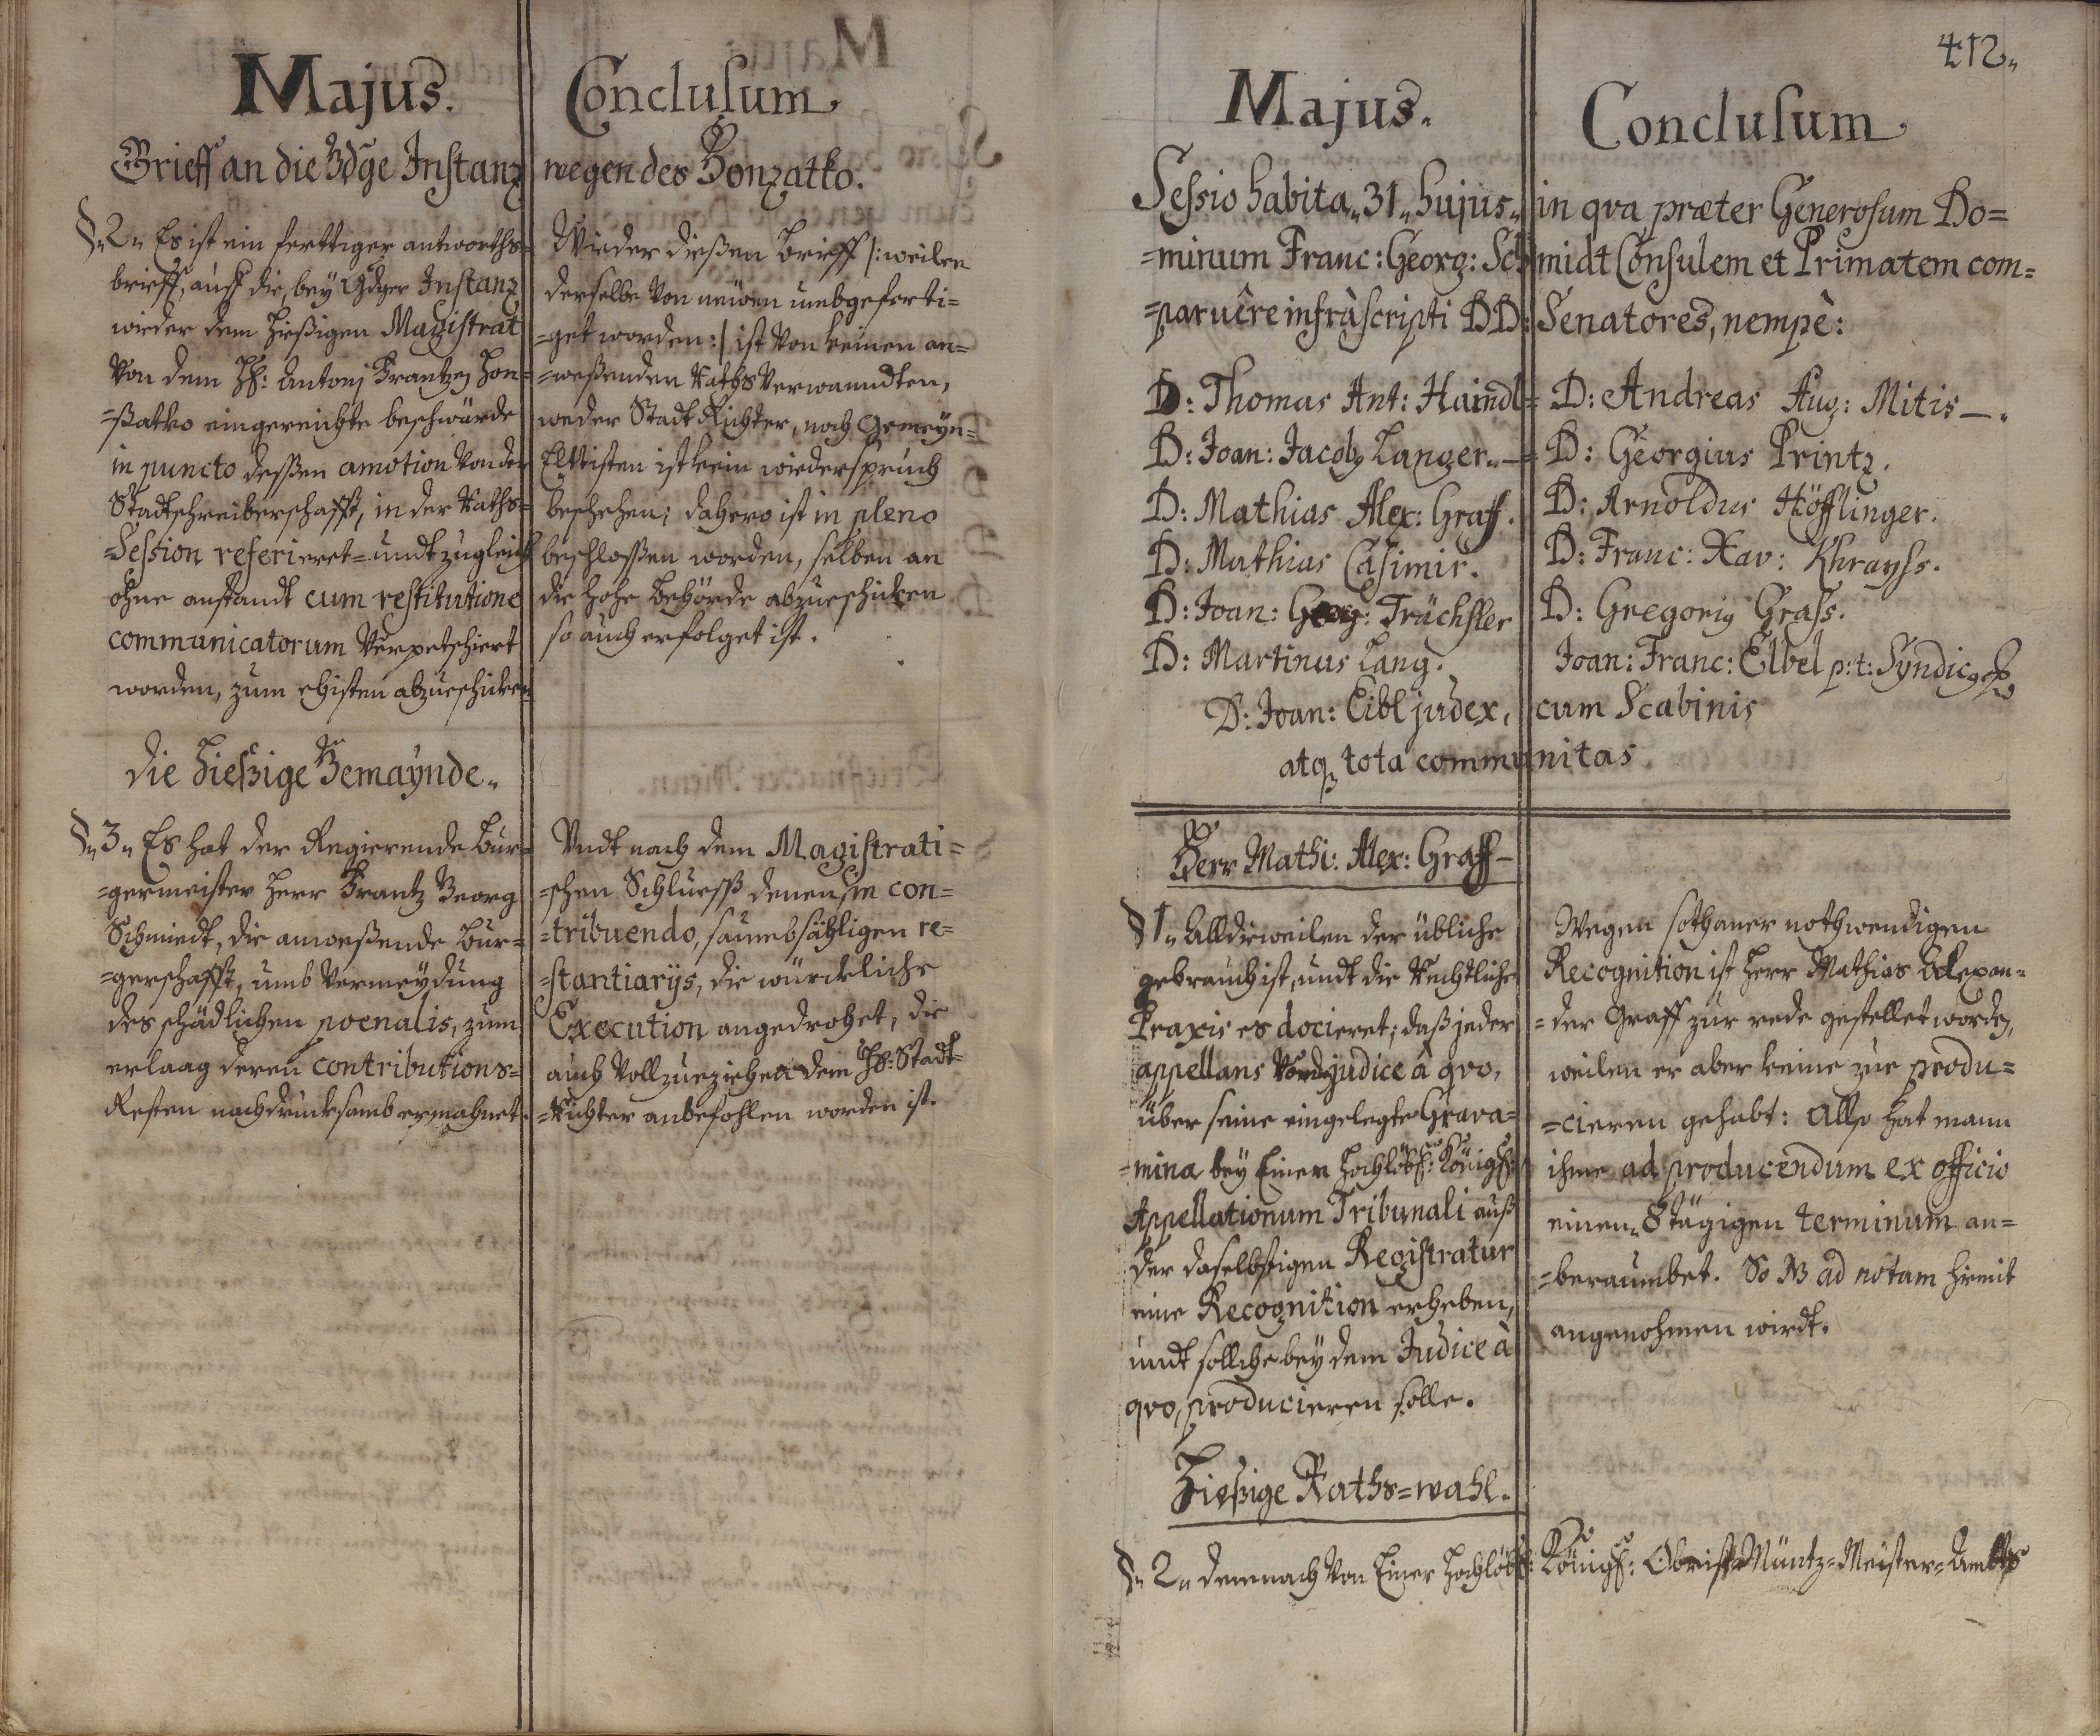 Majus.
Brieff an die Gdge Instanz
§„2„ Es ist ein ferttiger antworths=
brieff, auff die, bey Gdger Instanz
wieder dem hießigen Magistrat
Von dem H: Antonj Frantzen Hon=
=ßatko eingereichte beschwärde
in puncto deßen amotion Von der
Stadtschreiberschafft, in der Raths=
=Session referieret= undt zugleich
ohne anstandt cum restitutione
communicatorum Verpetschiert
worden, zum ehisten abzueschicken
die hießige Gemaynde„
§„3„ Es hat der Regierende Bur=
=germeister Herr Frantz Georg
Schmiedt, die anweßende Bur=
=gerschafft, umb Vermeydung
des schädlichen poenalis, zum
erlaag deren contributions=
Resten nachdrucksamb ermahnet.
Conclusum
wegen des Honzatko.
Wieder dießen brieff /: weilen
derselbe Von neüen umbgeferti=
=get worden :/ ist Von keinen an=
=weßenden Raths Verwanndten,
weder Stadt Richter, noch Gemeyn=
Elttisten ist kein wiederspruch
beschehen; dahero ist in pleno
beschloßen worden, selben an
die hohe Behörde abzueschicken
so auch erfolget ist.
Undt nach dem Magistrati=
=schen Schluesß denen in con=
=tribuendo, saumbsähligen re=
=stantiarijs, die würckliche
Execution angedrohet, die
auch Vollzueziehen dem H: Stadt=
=Richter anbefohlen worden ist.
412„
Majus.
Conclusum
Sessio habita„ 31„ hujus„ in qva præter Generosum Do=
=minum Franc: Georg: Schmidt Consulem et Primatem com=
=paruêre infràscripti DD: Senatores, nempè:
D: Thomas Ant: Haindl=
D: Joan: Jacob Langer„—
D: Mathias Alex: Graff.
D: Mathias Casimir.
D: Joan: Georg: Trüchsler
D: Martinus Lang.
D: Andreas Aug: Mitis—.
D: Georgius Printz.
D: Arnoldus Höfflinger.
D: Franc: Xav: Khrayss.
D: Gregorig Grass.
Joan: Franc: Elbel p: t: Syndicg
D: Joan: Eibl judex, cum Scabinis
atq tota communitas
Herr Mathi: Alex: Graff—
§1„ Alldieweilen der übliche
gebrauch ist, undt die Rechtliche
Praxis es docieret; daß jeder
appellans Von judice à qvo,
über seine eingelegte Grava=
=mina bey Einer Hochlöbl: Königl:
Appellationum Tribunali auß
der daselbstigen Registratur
eine Recognition erheben,
undt sollche bey dem Judice à
qvo, producieren solle.
Wegen sothaner nothwendigen
Recognition ist Herr Mathias Alexan=
=der Graff zur rede gestellet worden,
weilen er aber keine zue produ=
=cieren gehabt: Allso hat mann
ihme ad producendum ex officio
einen„ 8 tägigen terminum an=
=beraumbet. So NB ad notam hiemit
angenohmen wirdt.
Hießige Raths=wahl.
§„2„ demnach Von Einer Hochlöbl: Königl: Obrist Müntz=Meister=Ambts